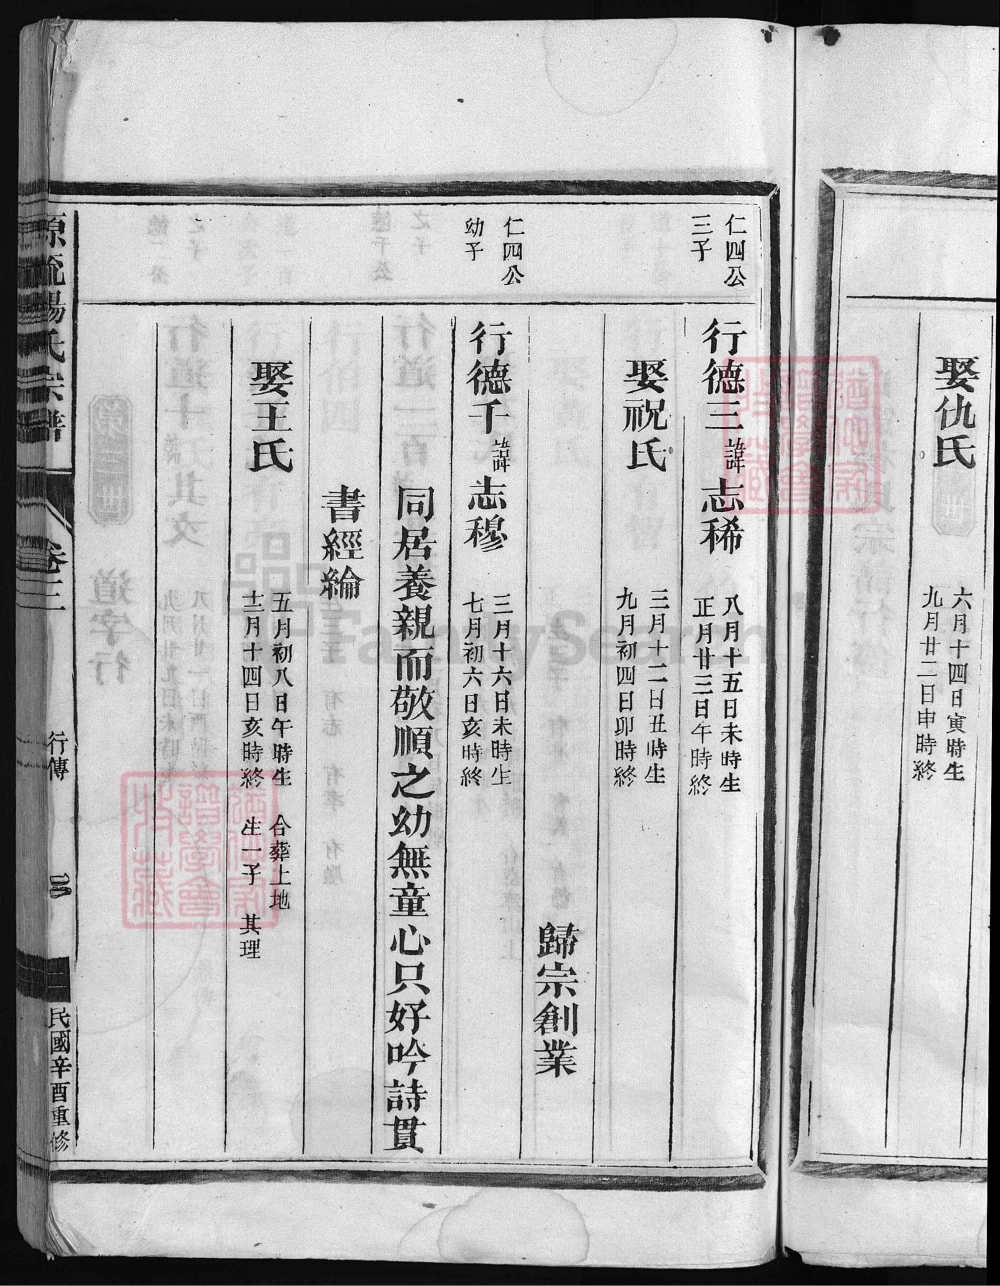 娶仇氏
六月十四日寅時生
九月廿二日申時終
仁四公
三子
行德三諱志稀
八月十五日未時生
正月廿三日午時終
娶祝氏
三月十二日丑時生
九月初四日卯時終
歸宗創業
仁四公
幼子
行德千諱志穆
三月十六日未時生
七月初六日亥時終
同居養親而敬順之幼無童心只好吟詩貫
書經綸
娶王氏
五月初八日午時生 合葬上地
十一月十四日亥時終 生一子 其理
源流楊氏宗譜
卷三
行傳
民國辛酉重修
FamilySearch